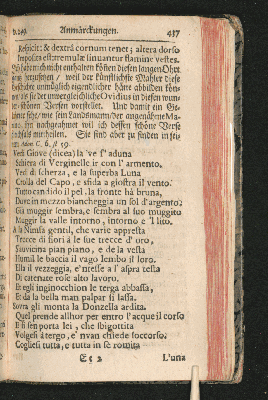 v. 249. Anmärckungen. 437
Respicit: & dextrâ cornum tenet; altera dorso
Imposita est: tremulæ sinuantur flamine vestes.
weil der Künstlichste Mahler diese
Geschichte unmüglich eigendlicher hätte abbilden kön-
nen/ als sie der unvergleichliche Ovidius in diesen wun-
der-schönen Versen vorstellet. Und damit ein Gi-
wie sein Landsmann/ der angenähme Ma-
rino, ihn nachgeahmet/ will ich dessen schöne Verse
ebenfals mittheilen. Sie sind aber zu finden in sei-
nem Adon C. 6. st 59.
Vedi Giove (dicea) là 've s'aduna
Schiera di Verginelle ir con l'armento.
Ved di scherza, e la superba Luna
Crolla del Capo, e sfida a giostra il vento.
Tutto candido il pel, la fronte hà bruna,
Dove in mezzo biancheggia un sol d'argento:
Già muggir sembra, e sembra al suo muggito
Muggir la valle intorno, intorno e 'l lito.
A la Ninfa gentil, che varie appresta
Trecce di fiori à le sue trecce d'oro,
S'avvicina pian piano, e de la vesta
Humil le baccia il vago lembo il loro.
Ella il vezzeggia, e 'ntesse a l'aspra testa
Di catenate rose alto lavoro.
Et egli inginocchion le terga abbassa,
Et da la bella man palpar si lassa.
Sovra gli monta la Donzella ardita.
Quel prende allhor per entro l'acque il corso
E sì sen porta lei, che sbigottita
Volgesi à tergo, e 'nvan chiede soccorso.
Coglie si tutta, e tutta in se romita
Ee 2 L'una